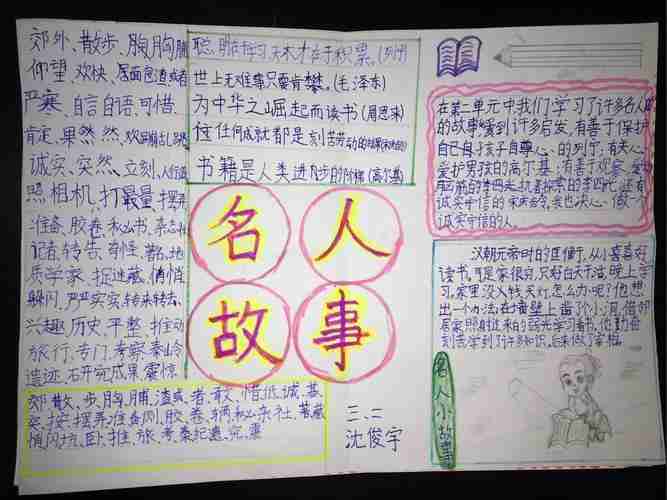 郊外、散步、胸脯
仰望、欢快、面包渣或者
严寒、自言自语、可惜、
肯定、果然、然、欢蹦乱跳
诚实、突然、立刻、
照相机、打量、摆弄
准备、胶卷、秘书、杂志社
记者、转告、奇怪、著名、地
质学家、捉迷藏、悄悄
躲闪、严严实实、转来转去、
兴趣、历史、平整、推动
旅行、专门、考察、秦岭
遗迹、研究、成果、震惊、
郊、散、步、胸、脯、渣、或、者、敢、惜、低、诚、基
姿、投、摆、弄、准、备、刚、胶、卷、辆、秘、杂、社、著、藏
悄、闪、坊、卧、推、旅、考、秦、纪、遗、究、震
聪明在于学习,天才在于积累。(列宁)
世上无难事只要肯攀。(毛泽东)
为中华之崛起而读书(周恩来)
任何成就都是刻苦劳动的结果(宋庆龄)
书籍是人类进步的阶梯(高尔基)
名人
故事
三、二
沈俊宇
在第二单元中我们学习了许多名人
的故事受到许多启发,有善于保护
自己身孩子自尊心、的列宁,有关心、
爱护男孩的高尔基;有善于观察、爱动
脑筋的李四光、执着探索的李四光、还有
诚实守信的宋庆龄、我也决心、做一个
诚实守信的人。
汉朝元帝时的匡衡,从小喜喜好
读书,可是家很穷,只好白天干活,晚上学
习,家里没入钱买灯,怎么办呢?他想
出一个办法:在墙壁上凿了个小洞,借邻
居家照射过来的弱光学习看书、他勤奋
刻苦学到了许多知识,后来做了宰相。
名人小故事